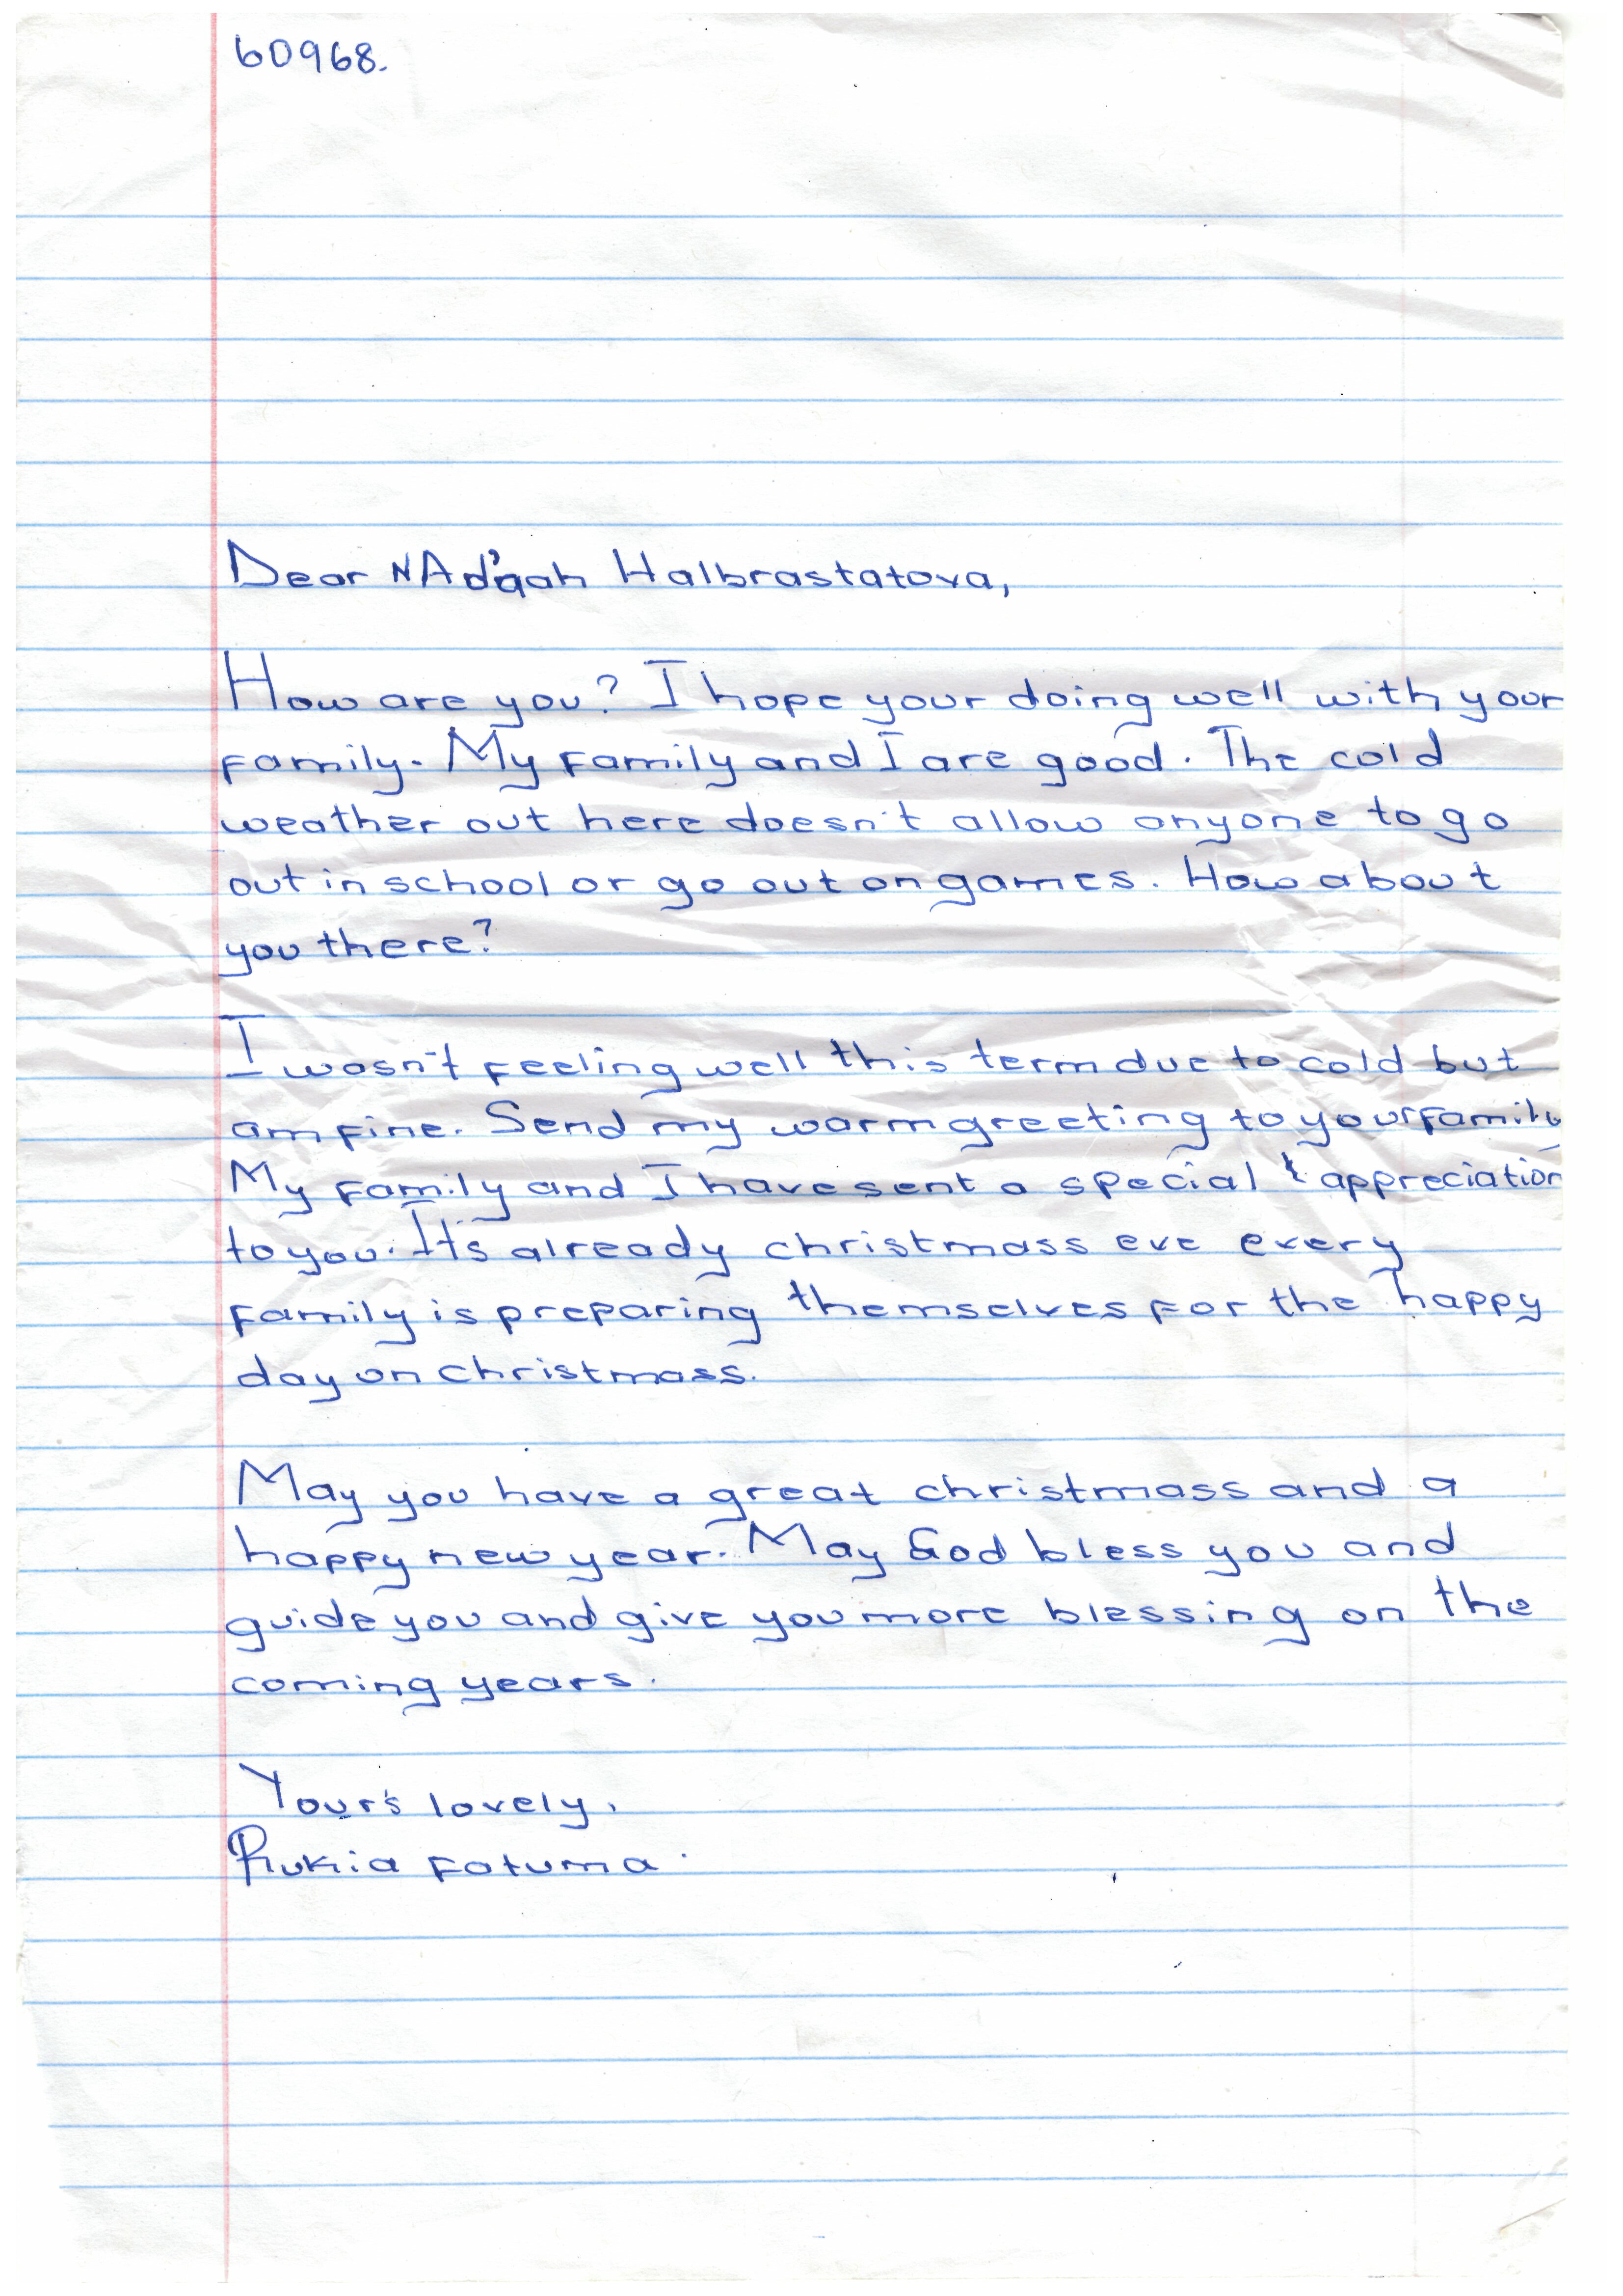 60968.
Dear NAd'qah Halbrastatova,
How are you? I hope your doing well with your
family. My family and I are good. The cold
weather out here doesn't allow anyone to go
out in school or go out on games. How about
you there?
I wasn't feeling well this term due to cold but
am fine. Send my warm greeting to your family
My family and I have sent a special & appreciation
to you. It's already christmass eve every
family is preparing themselves for the happy
day on christmass.
May you have a great christmass and a
happy new year. May God bless you and
guide you and give you more blessing on the
coming years.
Your's lovely,
Rukia Fatuma.